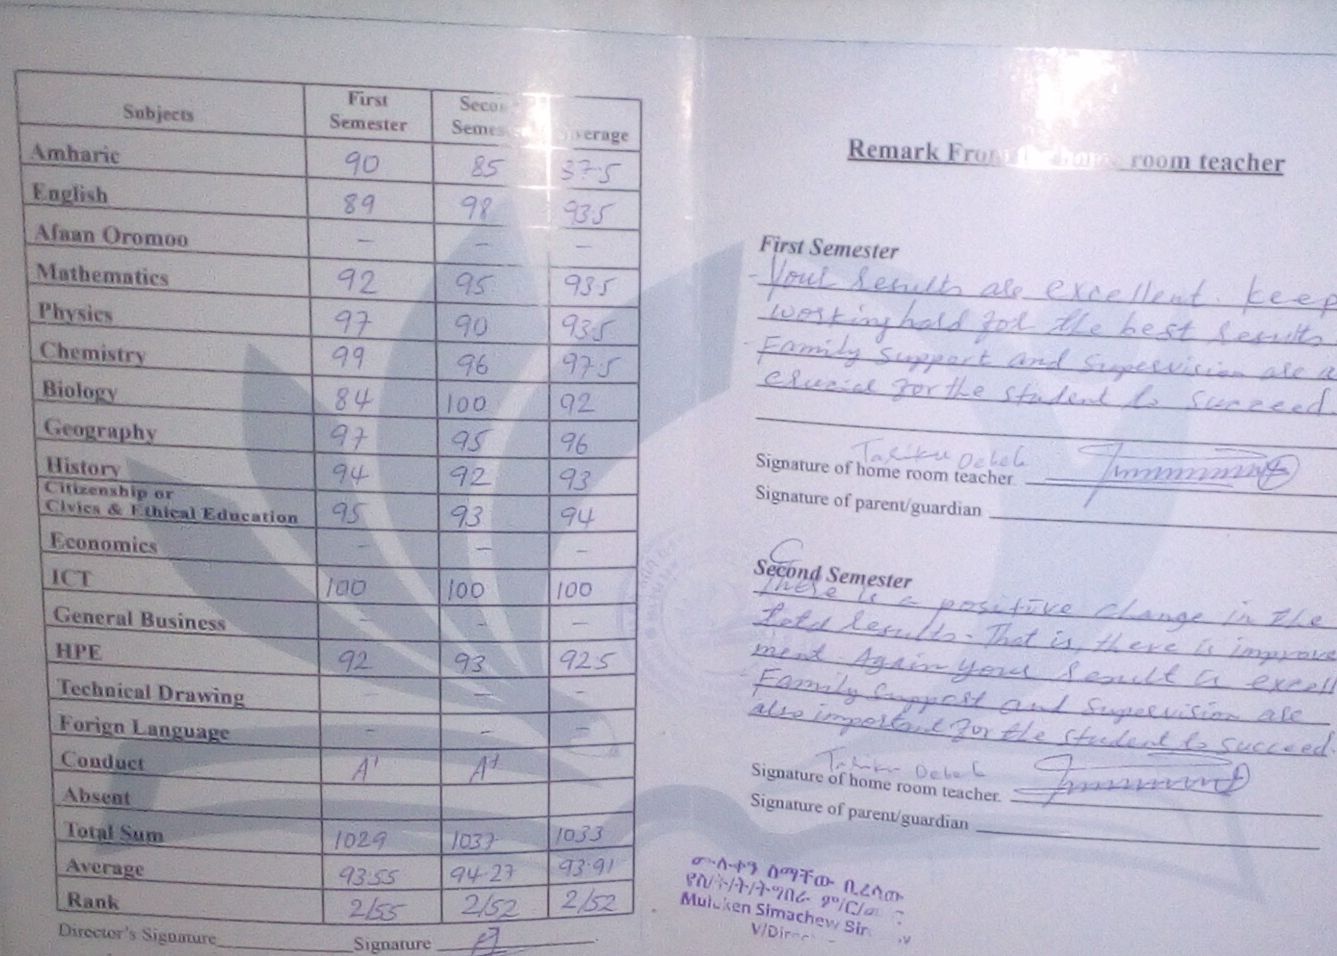 Subjects First Semester Secon Semes verage
Amharic 90 85 37.5
English 89 98 93.5
Afaan Oromoo – – –
Mathematics 92 95 93.5
Physics 97 90 93.5
Chemistry 99 96 97.5
Biology 84 100 92
Geography 97 95 96
History 94 92 93
Citizenship or
Civics & Ethical Education 95 93 94
Economics – – –
ICT 100 100 100
General Business – – –
HPE 92 93 92.5
Technical Drawing – –
Forign Language – – –
Conduct A+ A+
Absent
Total Sum 1029 1037 1033
Average 93.55 94.27 93.91
Rank 2/55 2/52 2/52
Director's Signature Signature
Remark From home room teacher
First Semester
- Your results are excellent. Keep
working hard for the best results
- Family support and supervision are a
crucial for the student to succeed
Tariku
Signature of home room teacher.
Signature of parent/guardian
Second Semester
There is a positive change in the
total results. That is, there is improve
ment. Again your result is excell
- Family support and supervision are
also important for the student to succeed
Tariku
Signature of home room teacher.
Signature of parent/guardian
ሙሉቀን ስማቸው ቢረሳው
Muluken Simachew Sir
V/Direc